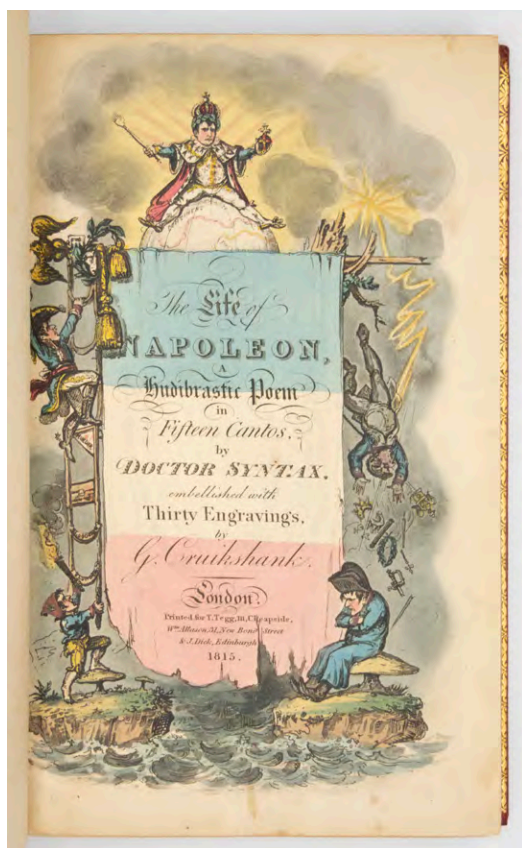 The Life of
NAPOLEON,
A
Hudibrastic Poem
in
Fifteen Cantos,
by
DOCTOR SYNTAX,
embellished with
Thirty Engravings,
by
G. Cruikshank.
London.
Printed for T. Tegg, 111, Cheapside,
Wm. Allason, 31, New Bond Street
& J. Dick, Edinburgh
1815.